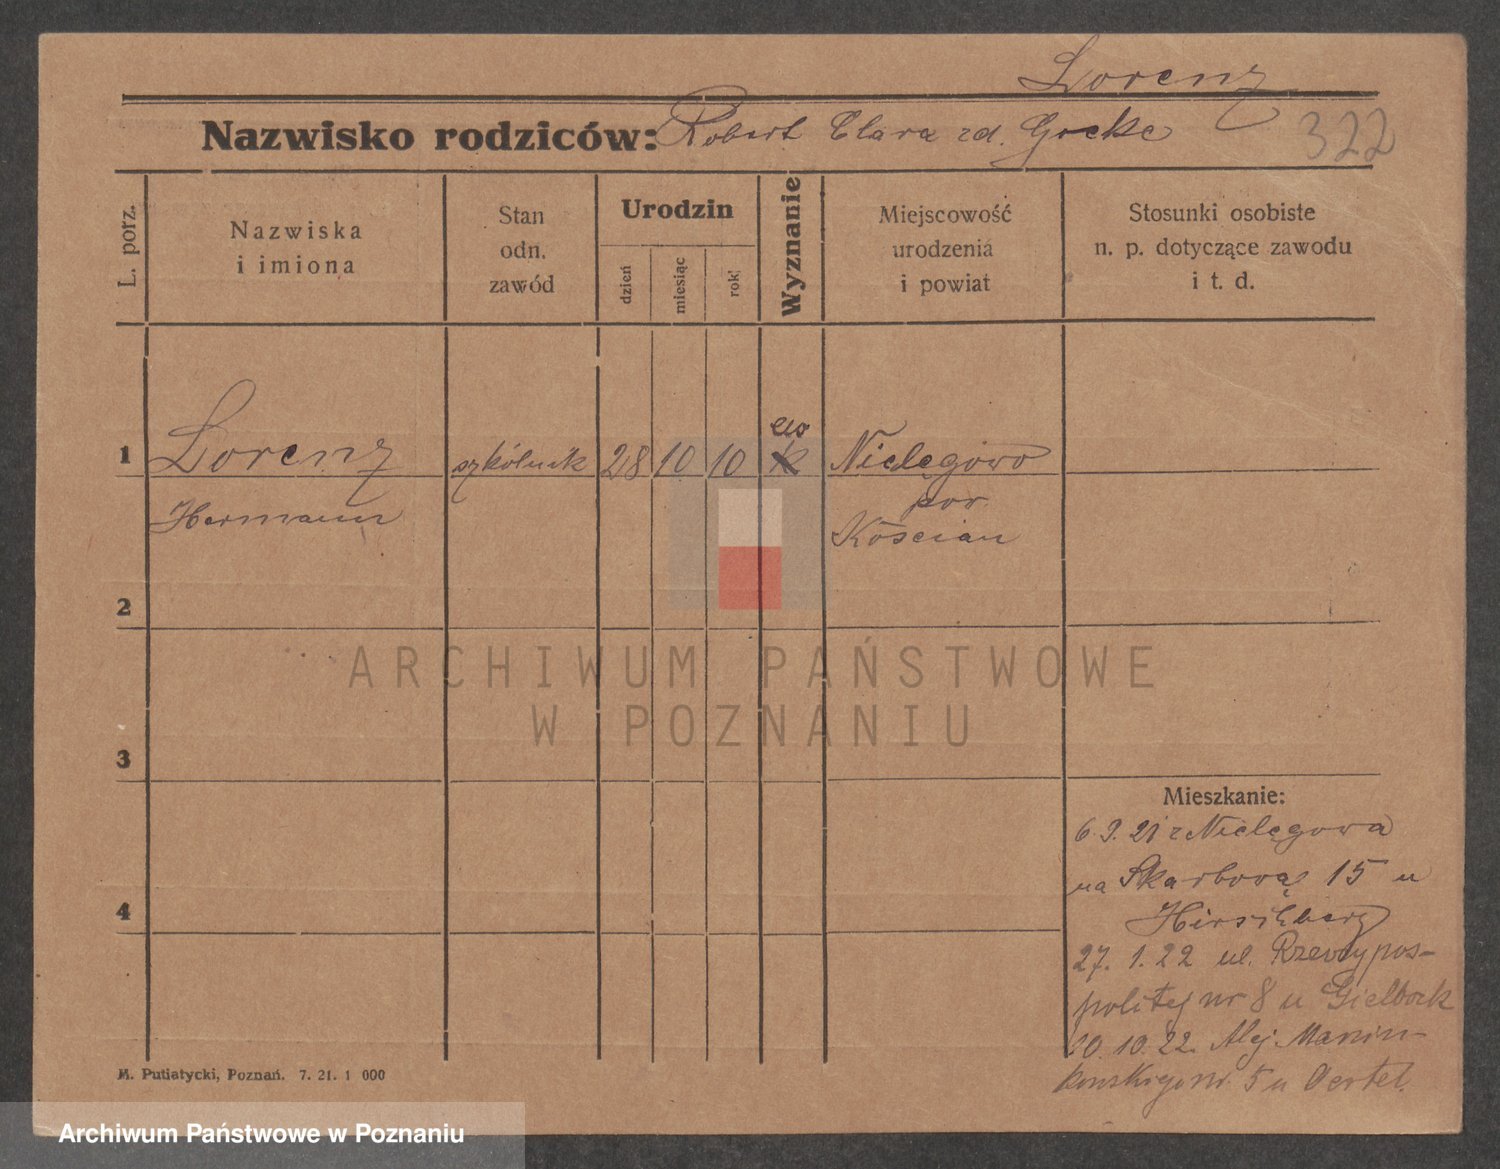 Lorenz
Nazwisko rodziców: Robert Clara zd. Goeke
322
L. porz.
Nazwiska
i imiona
Stan
odn.
zawód
Urodzin
dzień
miesiąc
rok
Wyznanie
Miejscowość
urodzenia
i powiat
Stosunki osobiste
n. p. dotyczące zawodu
i t. d.
ew
1 Lorenz szkólnik 28 10 10 k Nielęgowo
Hermann
pow.
Kościan
2
3
4
Mieszkanie:
6. 9. 21 z Nielęgowa
na Skarbową 15 u
Hirschberg
27. 1. 22 ul. Rzeczypos-
politej nr 8 u
20. 10. 22. Alej. Marcin-
kowskiego nr. 5 u Oertel.
M. Putiatycki, Poznań. 7. 21. 1 000
ARCHIWUM PAŃSTWOWE
W POZNANIU
Archiwum Państwowe w Poznaniu